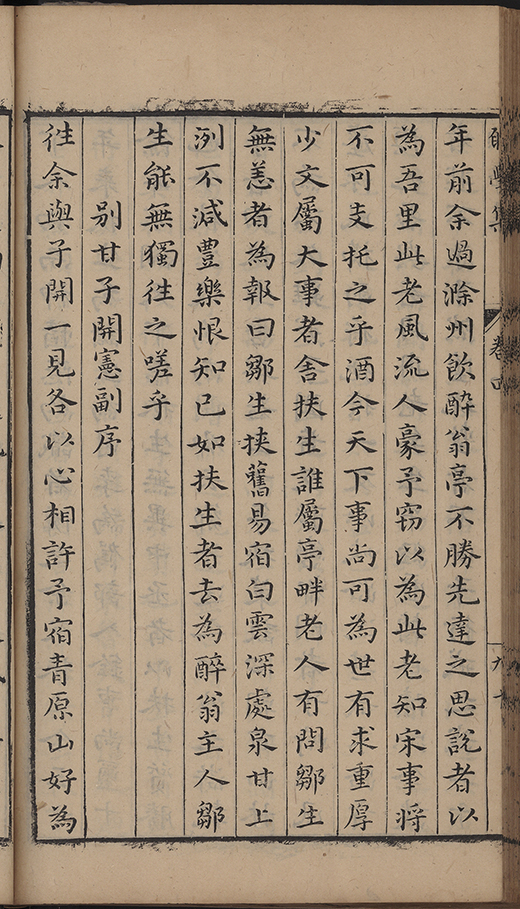 學集 卷四
年前余過滁州飲醉翁亭不勝先達之思說者以
為吾里此老風流人豪予窃以為此老知宋事將
不可支托之乎酒今天下事尚可為世有求重厚
少文屬大事者舍扶生誰屬亭畔老人有問鄒生
無恙者為報曰鄒生挾舊易宿白雲深處泉甘上
洌不減豐樂恨知己如扶生者去為醉翁主人鄒
生能無獨徃之嗟乎
別甘子開憲副序
徃余與子開一見各以心相許予宿青原山好為